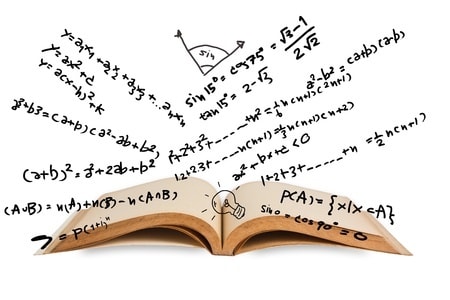 y=a₁x₁+a₂x₂+a₃x₃+...
y=ax²+c
y=a(x-h)²+k
sin
sin15°=cos75°=√3-1/2√2
tan15°=2-√3
a²-b²=(a+b)(a-b)
a³+b3=(a+b)(a²-ab+b²)
1²+2²+3²+......+n²=1/6n(n+1)(2n+1)
(a+b)²=a²+2ab+b²
ax²+bx+c<0
1+2+3+......+n=1/2n(n+1)
(A∪B)=n(A)+n(B)-n(A∩B)
P(A)={x|x⊂A}
sin0=cos90°=0